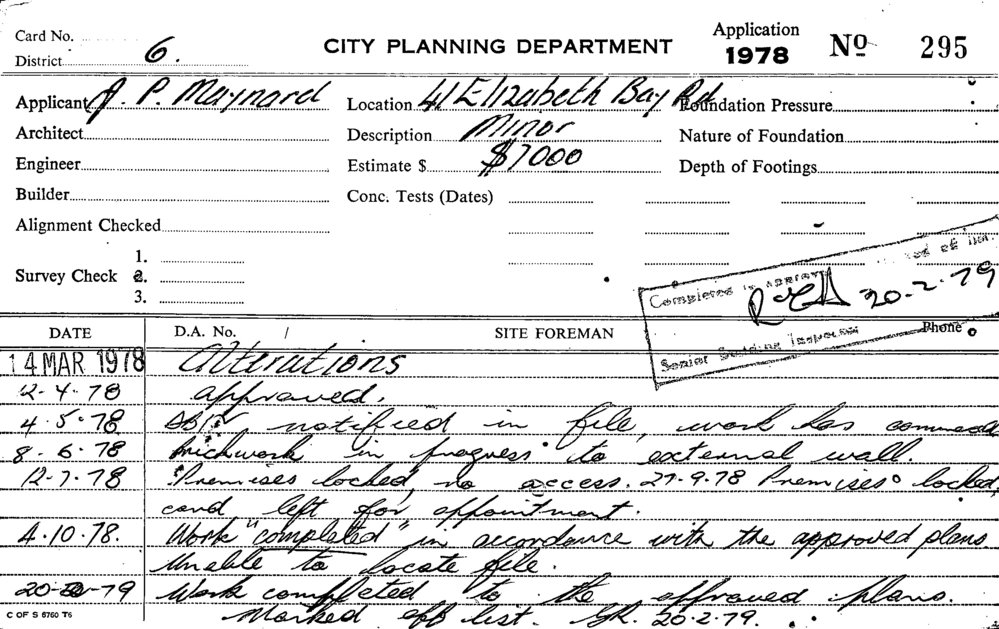 Card No.
District 6.
CITY PLANNING DEPARTMENT
Application
1978
No 295
Applicant J. P. Maynard
Location 41 Elizabeth Bay Rd
Foundation Pressure
Architect
Description Minor
Nature of Foundation
Engineer
Estimate $ $7000
Depth of Footings
Builder
Conc. Tests (Dates)
Alignment Checked
Survey Check
1.
2.
3.
Completed
20-2-79
Senior Building Inspector
DATE D.A. No. / SITE FOREMAN Phone
14 MAR 1978 Alterations
12-4-78 approved.
4-5-78 notified in file, work has commenced
8-6-78 brickwork in progress to external wall.
12-7-78 Premises locked, no access. 27-9-78 Premises locked,
card left for appointment.
4.10.78. Work "completed" in accordance with the approved plans
Unable to locate file.
Work completed to the approved plans.
Marked off list. 20-2-79.
C OF S 6760 T6